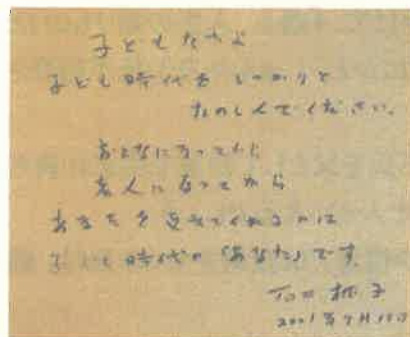 子どもたちよ
子ども時代を しっかりと
たのしんでください。
おとなになってから
老人になってから
あなたを支えてくれるのは
子ども時代の「あなた」です
石井桃子
2001年7月18日